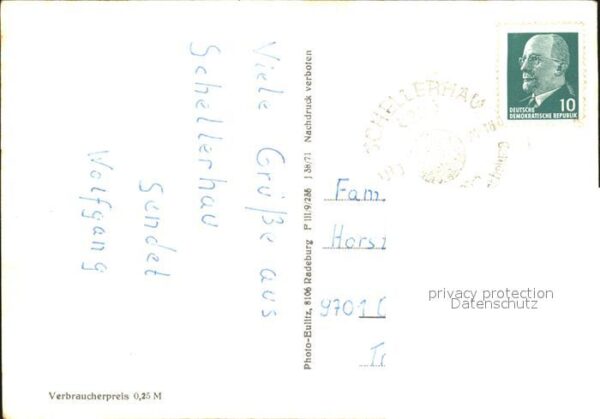 Viele Grüße aus
Schellerhau
sendet
Wolfgang
Verbraucherpreis 0,25 M
Photo-Eulitz, 8106 Radeburg P III/9/286 J 38/71 Nachdruck verboten
SCHELLERHAU
10
DEUTSCHE
DEMOKRATISCHE REPUBLIK
Fam.
Horst
9701
privacy protection
Datenschutz